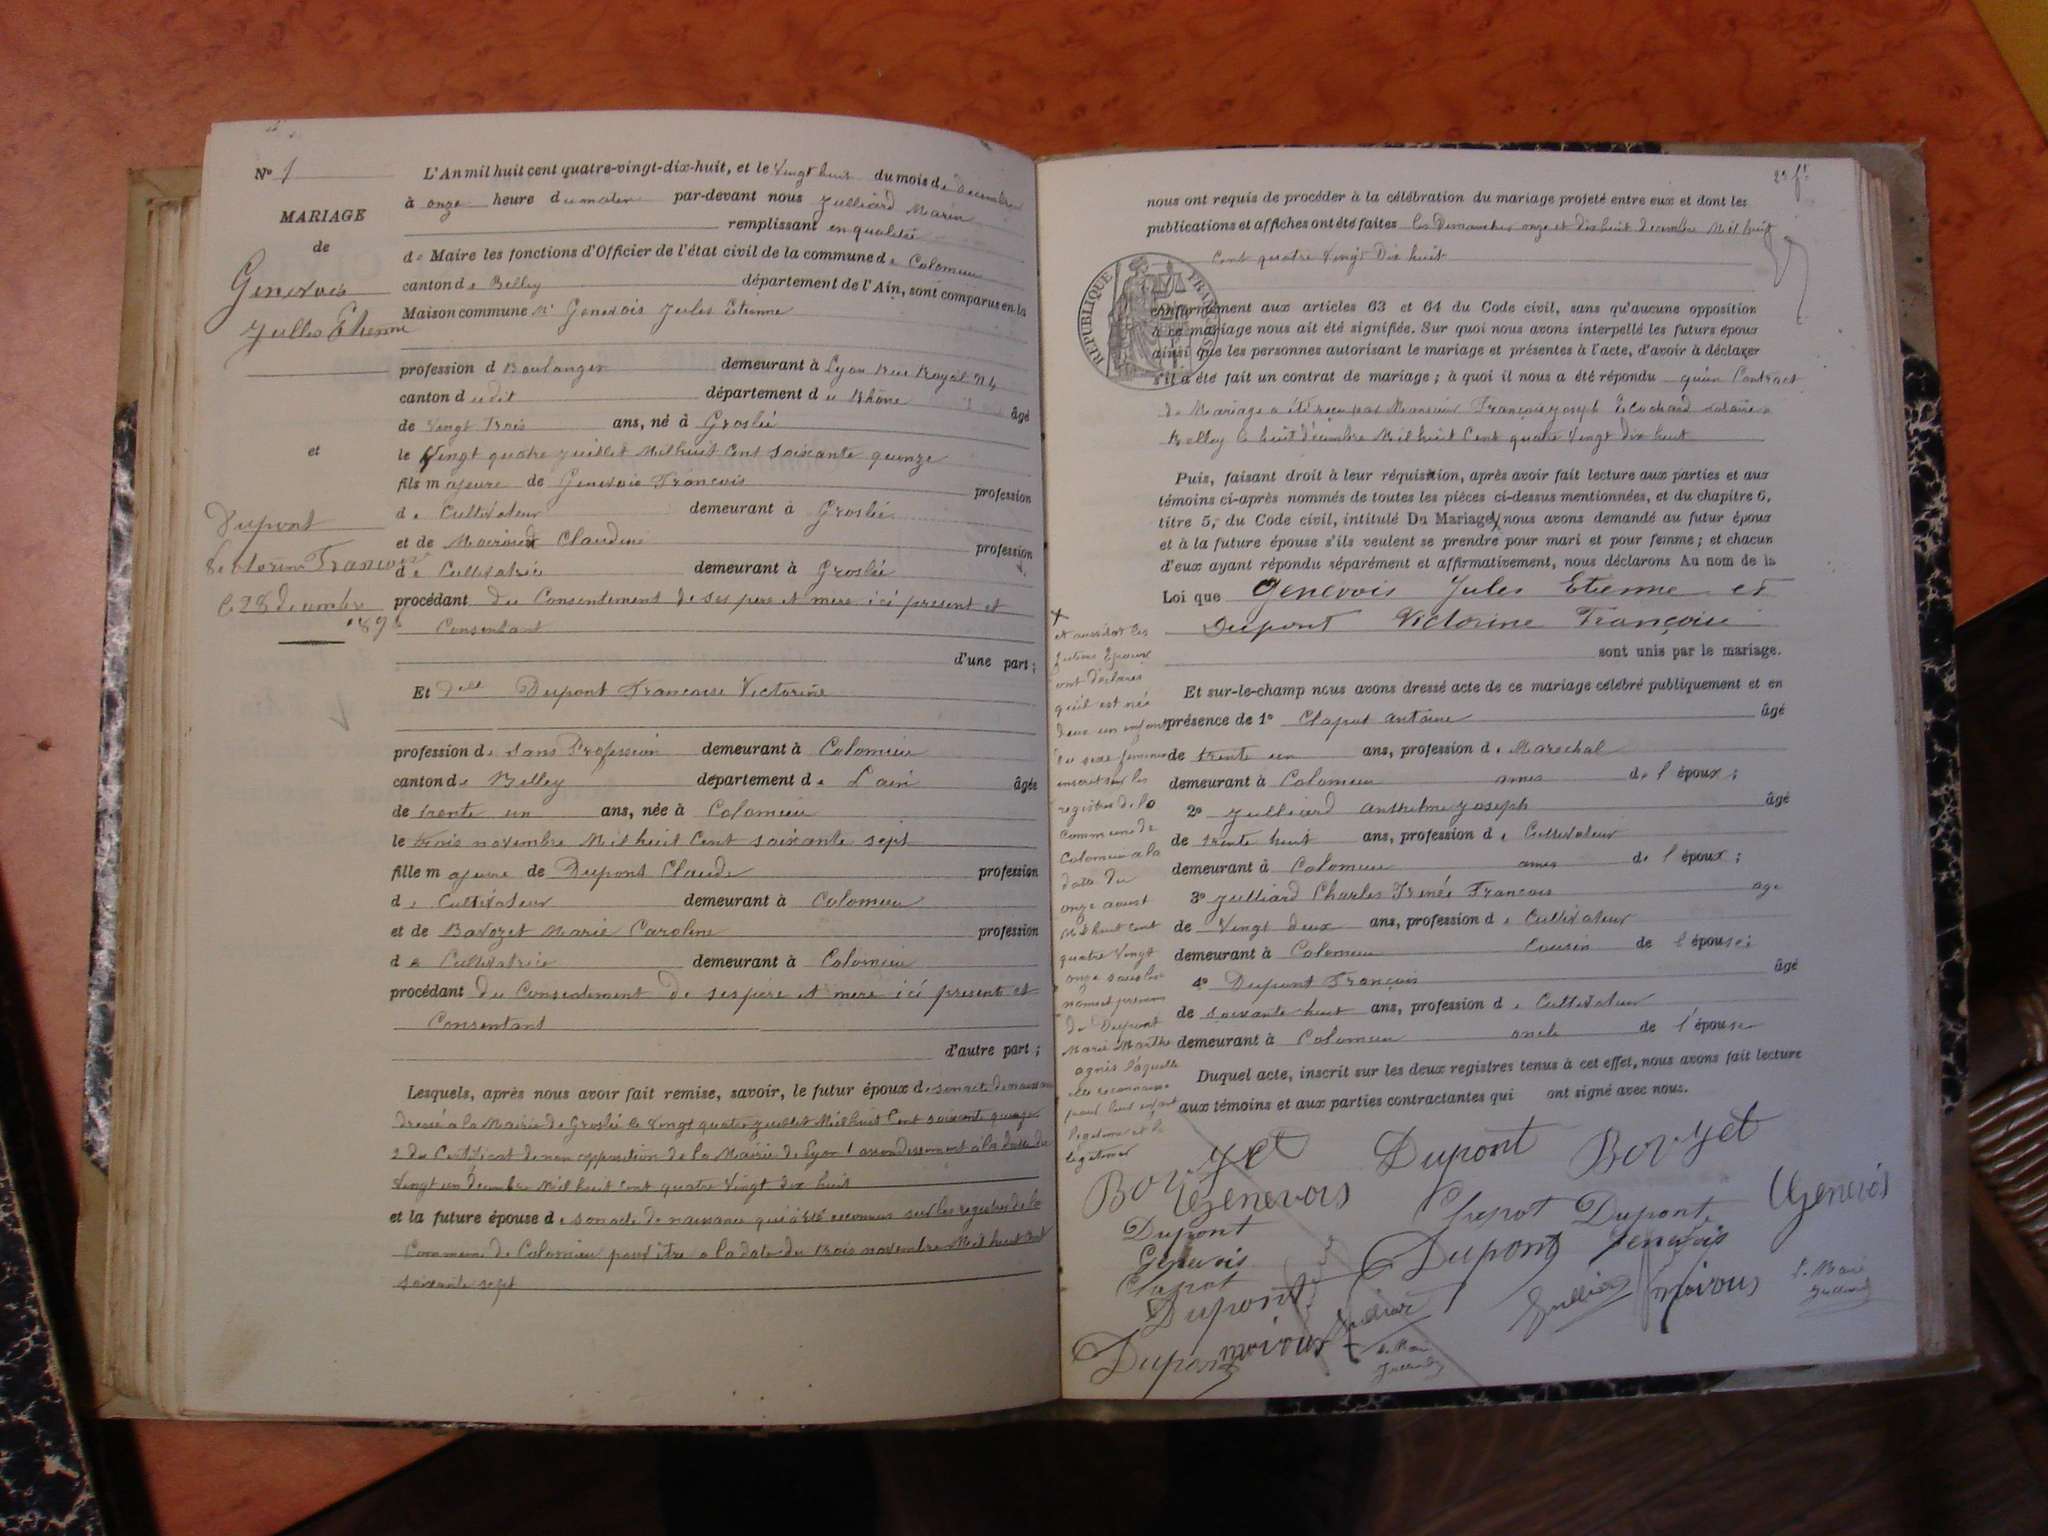 Nº 1
MARIAGE
de
Genevois
Julles Etienne
et
Dupont
Victorine Françoise
le 28 decembre
1898
L'An mil huit cent quatre-vingt-dix-huit, et le Vingt huit du mois de Decembre
à onze heure du matin par-devant nous Julliard Marin
remplissant en qualité
de Maire les fonctions d'Officier de l'état civil de la commune de Colomieu
canton de Belley département de l'Ain, sont comparus en la
Maison commune Mr Genevois Jules Etienne
profession d Boulanger demeurant à Lyon Rue Royal N 4
canton dudit département du Rhône âgé
de Vingt Trois ans, né à Groslée
le Vingt quatre Juillet Mil huit Cent Soixante quinze
fils majeure de Genevois François profession
de Cultivateur demeurant à Groslée
et de Claudine profession
de Cultivatrice demeurant à Groslée
procédant du Consentement de ses pere et mere ici present et
Consentant
d'une part;
Et Delle Dupont Francoise Victorine
profession de sans Profession demeurant à Colomieu
canton de Belley département de L'ain âgée
de trente un ans, née à Colomieu
le trois novembre Mil huit Cent soixante sept
fille majeure de Dupont Claude profession
de Cultivateur demeurant à Colomieu
et de Bavozet Marie Caroline profession
de Cultivatrice demeurant à Colomieu
procédant du Consentement de ses pere et mere ici present et
Consentant
d'autre part;
Lesquels, après nous avoir fait remise, savoir, le futur époux de son acte de naissance
dressé a la Mairie de Groslée le Vingt quatre Juillet Mil huit Cent soixante quinze
2 du Certificat de non opposition de la Mairie de Lyon 1 arrondissement a la date du
Vingt un décembre Mil huit cent quatre Vingt dix huit
et la future épouse de son acte de naissance qui a été reconnus sur les registres de la
Commune de Colomieu pour être a la date du trois novembre Mil huit cent
soixante sept
22 ft
nous ont requis de procéder à la célébration du mariage projeté entre eux et dont les
publications et affiches ont été faites les Dimanches onze et dix huit decembre Mil huit
Cent quatre Vingt Dix huit
RÉPUBLIQUE FRANÇAISE
conformément aux articles 63 et 64 du Code civil, sans qu'aucune opposition
à ce mariage nous ait été signifiée. Sur quoi nous avons interpellé les futurs époux
ainsi que les personnes autorisant le mariage et présentes à l'acte, d'avoir à déclarer
s'il a été fait un contrat de mariage; à quoi il nous a été répondu qu'un Contract
de Mariage a été reçu par Monsieur François Joseph Ecochard notaire a
Belley le huit décembre Mil huit Cent quatre Vingt dix huit
Puis, faisant droit à leur réquisition, après avoir fait lecture aux parties et aux
témoins ci-après nommés de toutes les pièces ci-dessus mentionnées, et du chapitre 6,
titre 5, du Code civil, intitulé Du Mariage, nous avons demandé au futur époux
et à la future épouse s'ils veulent se prendre pour mari et pour femme; et chacun
d'eux ayant répondu séparément et affirmativement, nous déclarons Au nom de la
Loi que Genevois Jules Etienne et
Dupont Victorine Françoise
sont unis par le mariage.
Et sur-le-champ nous avons dressé acte de ce mariage célébré publiquement et en
présence de 1º Clapot Antoine âgé
de trente un ans, profession de Marechal
demeurant à Colomieu amis de l'époux;
2º Julliard Anthelme Joseph âgé
de trente huit ans, profession de Cultivateur
demeurant à Colomieu amis de l'époux;
3º Julliard Charles Irénée Francois âgé
de Vingt deux ans, profession de Cultivateur
demeurant à Colomieu Cousin de l'épouse;
4º Dupont François âgé
de soixante huit ans, profession de Cultivateur
demeurant à Colomieu oncle de l'épouse
Duquel acte, inscrit sur les deux registres tenus à cet effet, nous avons fait lecture
aux témoins et aux parties contractantes qui ont signé avec nous.
x
et aussitot les
futurs Epoux
ont déclarés
qu'il est née
deux un enfant
du sexe feminin
inscrit sur les
registres de la
commune de
Colomieu a la
date du
onze aoust
Mil huit cent
quatre Vingt
onze sous les
noms et prenoms
de Dupont
Marie Marthe
agnès laquelle
elle reconnaisse
pour leur enfant
legetime et le
legetimer
Bovzet Dupont Bovzet
Genevois Clapot Dupont Genevois
Dupont
Genevois Dupont Genevois
Clapot
Dupont Julliard moirous le Maire
Julliard
Dupont moirous Julliard le Maire
Julliard